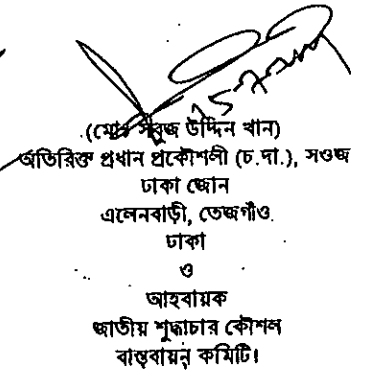 (মোঃ সবুজ উদ্দিন খান)
অতিরিক্ত প্রধান প্রকৌশলী (চ.দা.), সওজ
ঢাকা জোন
এলেনবাড়ী, তেজগাঁও
ঢাকা
ও
আহবায়ক
জাতীয় শুদ্ধাচার কৌশল
বাস্তবায়ন কমিটি।